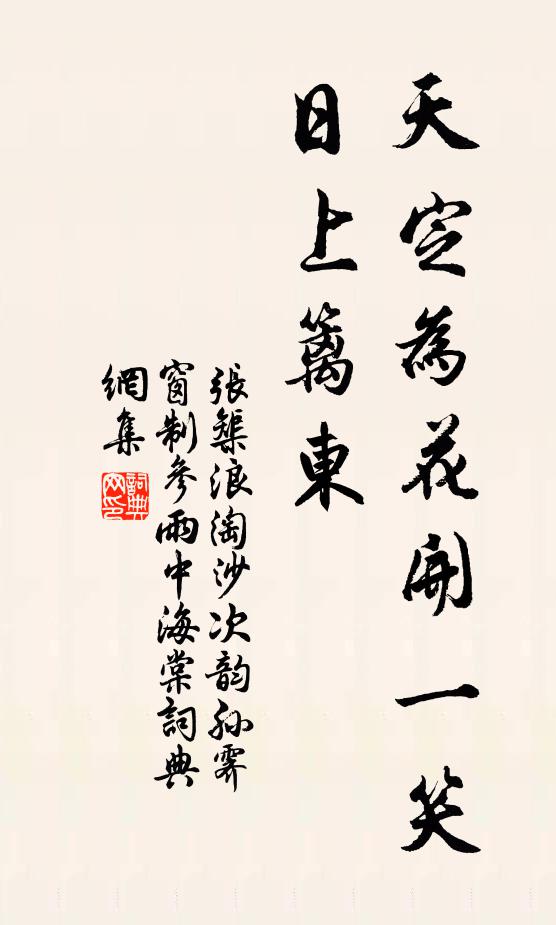 天定為花開一笑
日上籬東
張榘浪淘沙次韵孙霽
窗制參雨中海棠詞典
網集
詞典网印